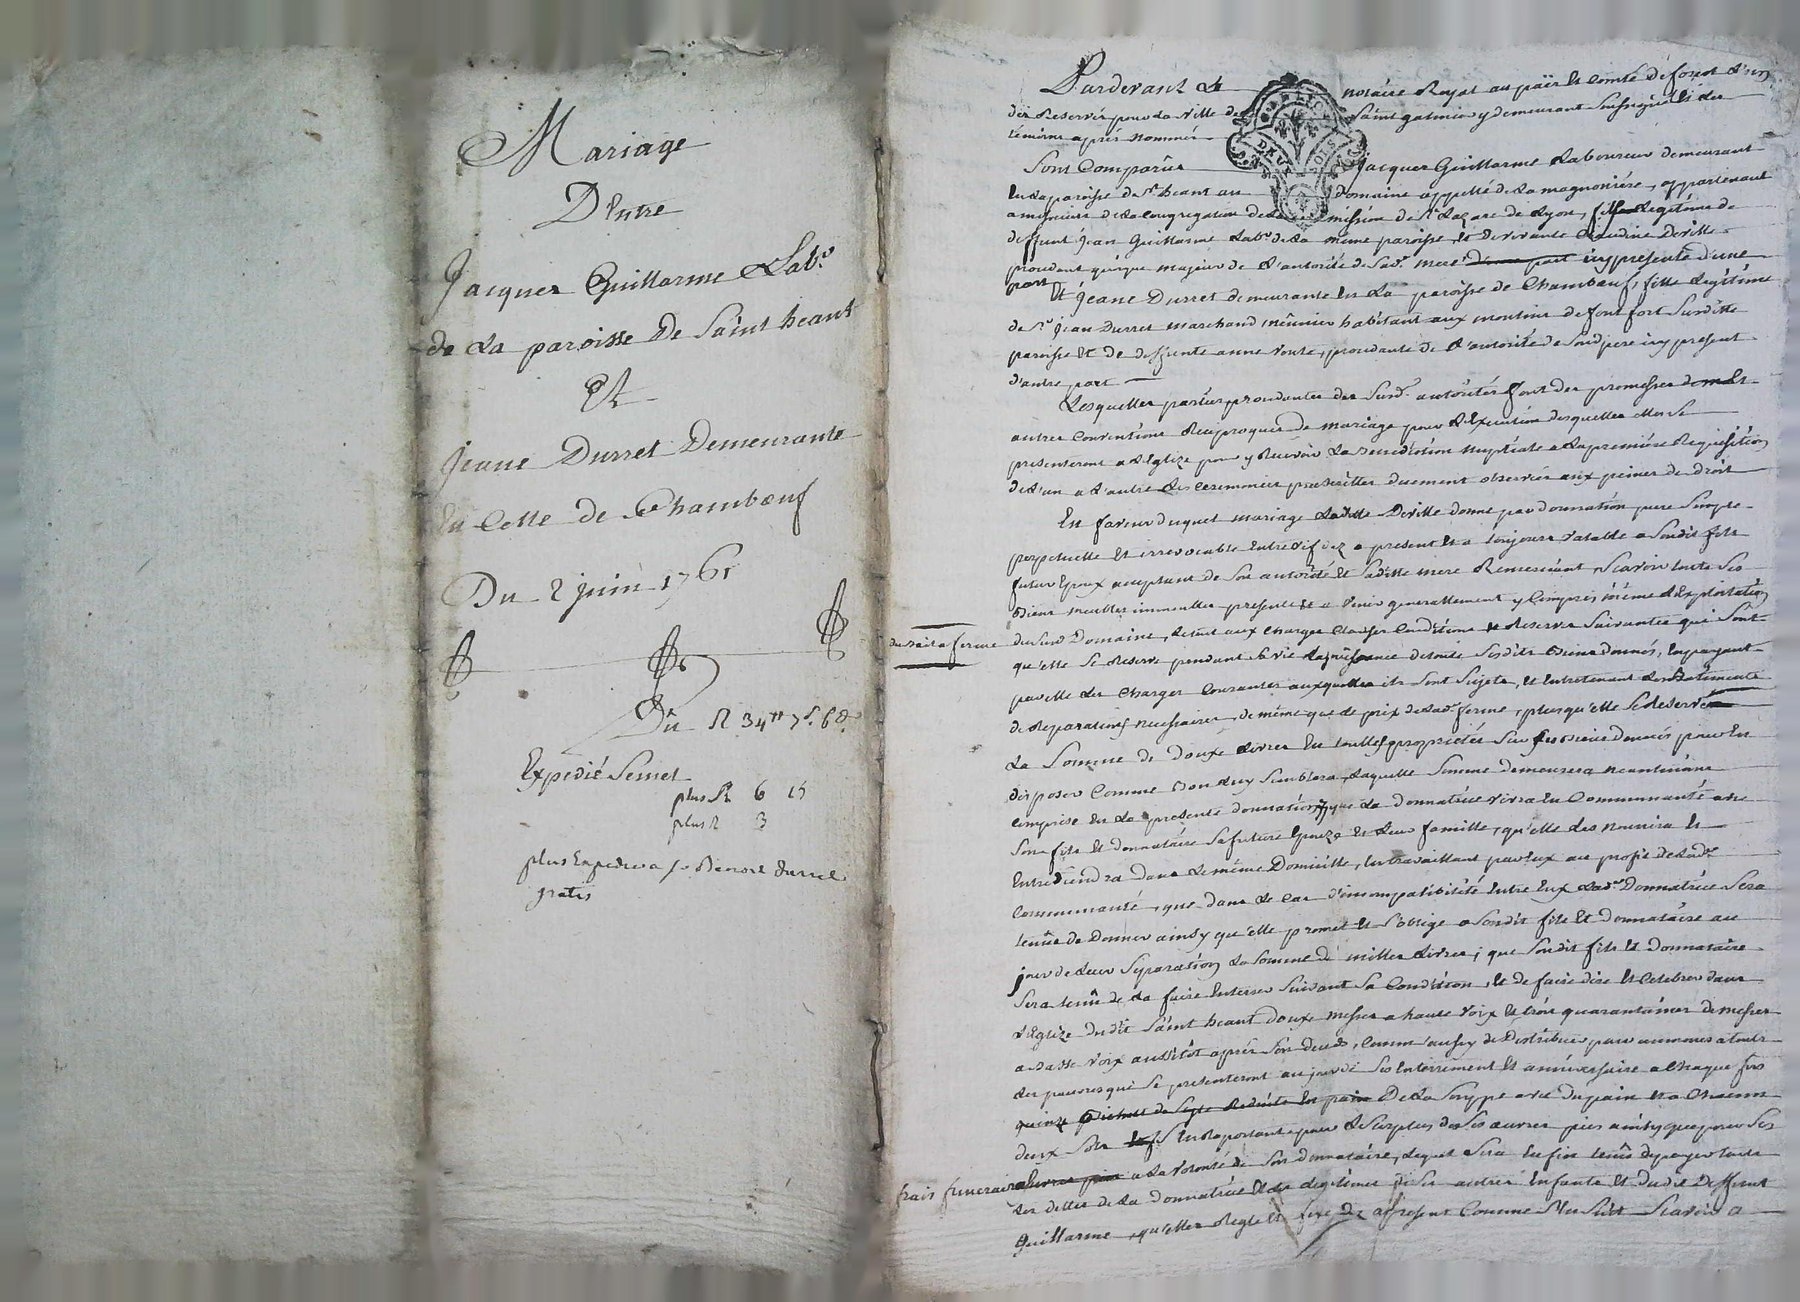 Mariage
D'Entre
Jacques Guillarme Lab.r
de La paroisse De Saint heant
Et
Jeane Durret Demeurante
En Celle de Chambœuf
Du 2 juin 1761
Du R 34tt 7s. 6d.
Expedié Seinet
plus R 6 15
plus R 3
plus Expedie a Benoit durret
gratis
Pardevant Le notaire Royal au païs et Comté de forest
des Reservés pour La Ville de Saint galmier y demeurant Soussigné Et des
temoins après Nommés
Sont Comparus Jacques Guillarme Laboureur demeurant
En La paroisse de St heant au domaine appellé de La magnoniere, appartenant
a messieurs de La Congregation de La mission de St Lazare de Lyon, fils Legitime de
deffunt Jean Guillarme Lab.r de La même paroisse, et De vivante Claudine Deville
procedant quoyque majeur de L'autorité de Sad.e mere icy presente d'une
part
Et Jeane Durret demeurante En La paroisse de Chambœuf, fille Legitime
de Sr Jean Durret marchand meûnier habitant aux moulins de font fort Susditte
paroisse Et de deffunte anne Voute, procedante de L'autorité de Sond pere icy present
d'autre part
Lesquelles parties procedantes des Susd. autorités font des promesses
autres Conventions Reciproques de mariage pour L'Execution desquelles elles Se
presenteront a L'Eglize pour y Recevoir La Benediction Nuptiale a La premiere Requisition
de L'un a L'autre Les Ceremonies prescrittes duement observées aux peines de droit
En faveur duquel mariage Laditte Deville donne par donnation pure Simple
perpetuelle Et irrevocable Entrevifs dez a present Et a toujours Valable a Sondit fils
futur Epoux acceptant de Son autorité Et Saditte mere Remerciant, Scavoir touts Ses
Biens meubles immeubles presents Et a Venir generallement y Compris même L'Exploitation
du bail a ferme
du Susd Domaine, Le tout aux Charges Clauses Conditions et Reserves Suivantes qui Sont
qu'elle Se Reserve pendant Sa vie La jouissance de touts Sesdits Biens donnés, En payant
par elle Les Charges Courantes auxquelles ils Sont Sujets, et Entretenant Les Batiments
de Reparations necessaires, de même que Le prix de Lad.e ferme, plus qu'elle Se Reserve
La Somme de douze Livres En touttes proprietés Sur Ses Biens donnés pour En
disposer Comme Bon Luy Semblera, Laquelle Somme demeurera neantmoins
Comprise En La presente donnation, que La donnatrice Vivra En Communauté avec
Son fils Et donnataire Sa future Epouze Et Leur famille, qu'elle Les Nourrira Et
Entretiendra dans Le même Domicille, En travaillant par Eux au profit de Lad.e
Communauté, que dans Le Cas d'incompatibilité Entre Eux Lad.e Donnatrice Sera
tenüe de Donner ainsy qu'elle promet Et S'oblige a Sondit fils Et donnataire au
jour de Leur Separation La Somme de milles Livres; que Sondit fils Et donnataire
Sera tenû de La faire Enterrer Suivant Sa Condition, Et de faire dire Et Celebrer dans
L'Eglize dudit Saint heant douze messes a haute Voix Et trois quarantaines de messes
a Basse Voix aussitôt après Son deceds, Comm'aussy de Distribuer pour aumones a touts
Les pauvres qui Se presenteront au jour de Ses Enterrement Et anniversaire a Chaque fois
quinze Bichets de Segle Reduits En pain De La Souppe avec du pain Et a Chacun
deux Sols Se Raportant pour Le Surplus de Ses œuvres pies ainsy que pour Ses
frais funeraires a La Volonté de Son donnataire, Lequel Sera Enfin tenû de payer touts
Les dettes de La donnatrice Et Les Legitimes de Ses autres Enfants Et dudit Deffunt
Guillarme, qu'elles Regle Et fixe Dz apresent Comme S'En Suit Scavoir a